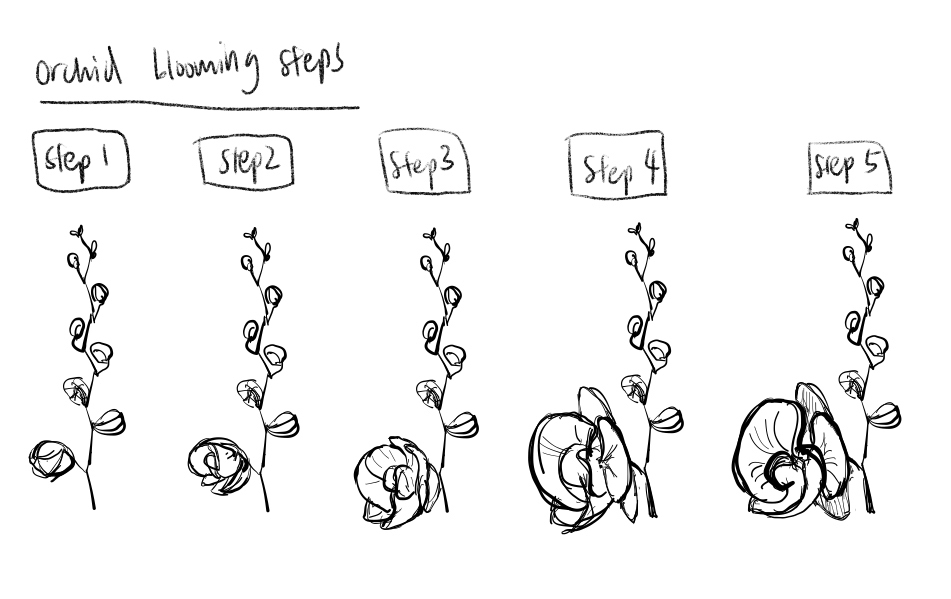 orchid blooming steps
step 1
step2
step3
step 4
step 5